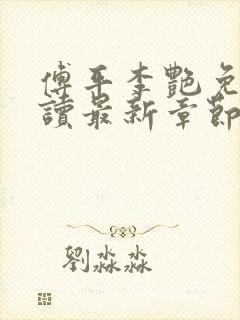 傅平李艷免
讀最新章節
劉淼淼